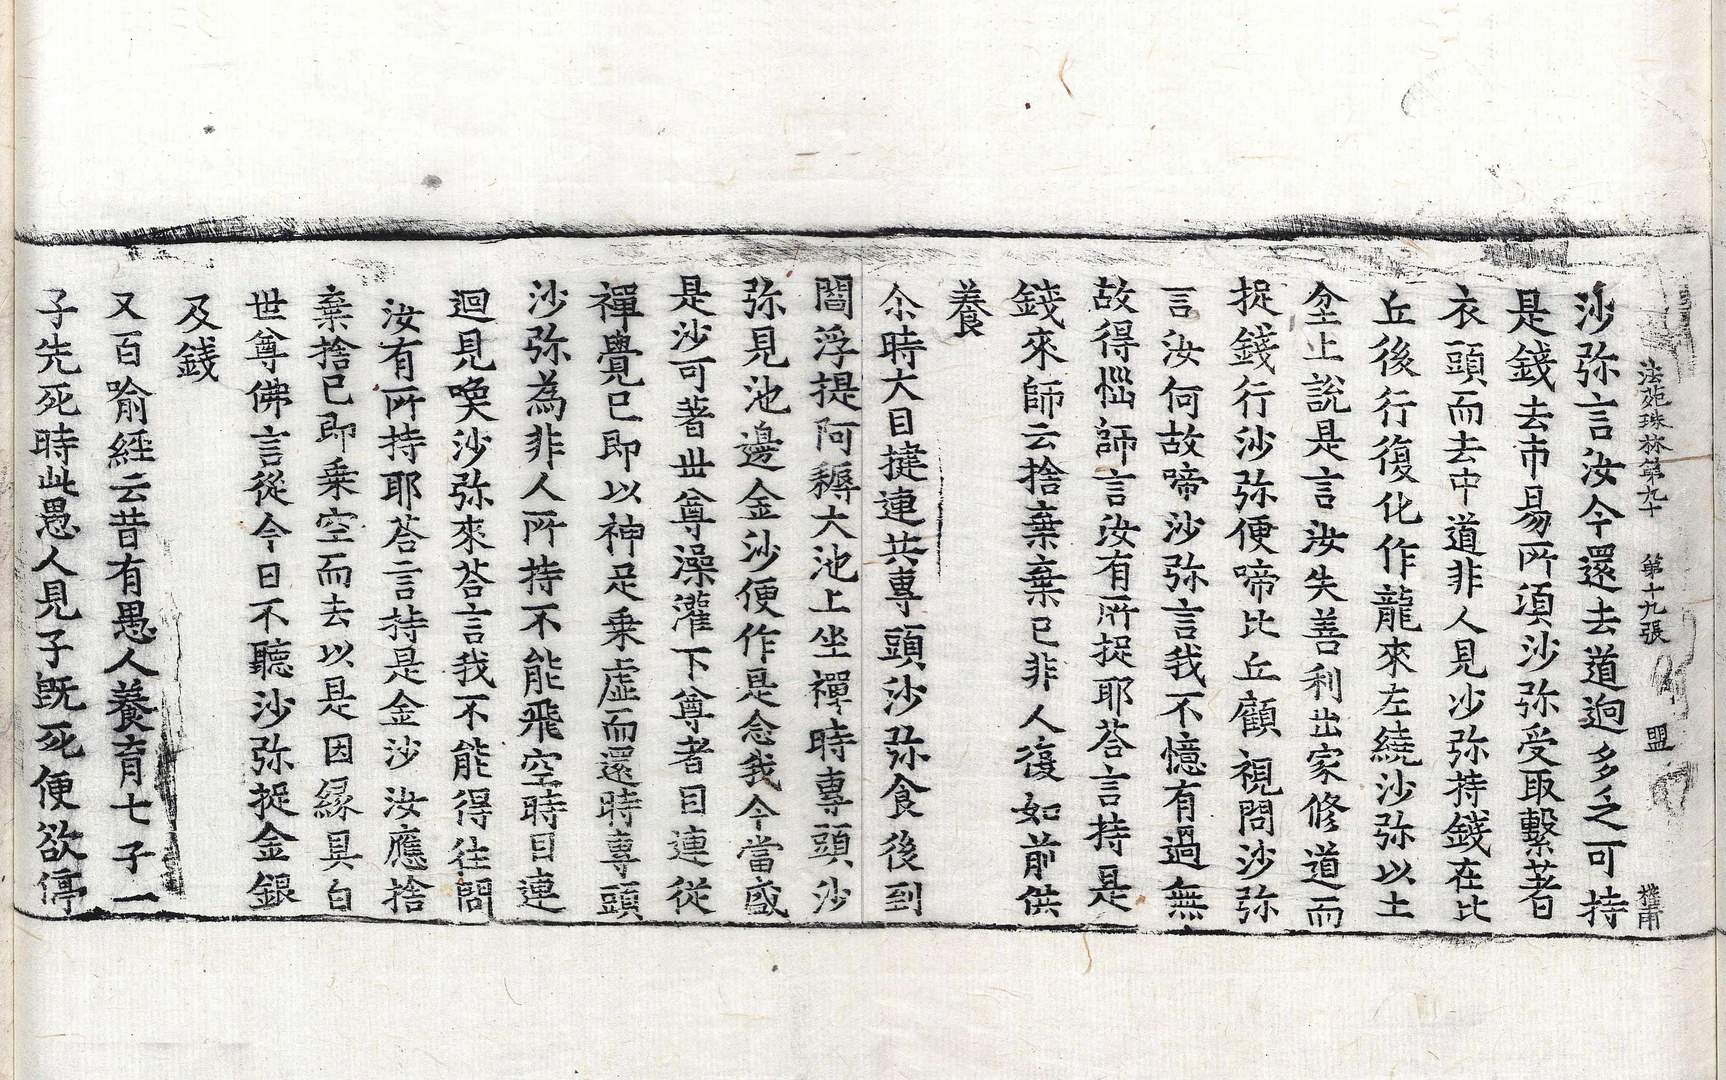 法苑珠林第九十 第十九張 盟
沙弥言汝今還去道迥多多之可持
是錢去市易所湏沙弥受取繫著
衣頭而去中道非人見沙弥持錢在比
丘後行復化作龍來左繞沙弥以土
坌上說是言汝失善利出家修道而
捉錢行沙弥便啼比丘顧視問沙弥
言汝何故啼沙弥言我不憶有過無
故得惱師言汝有所捉耶荅言持是
錢來師云捨棄棄已非人復如前供
養
尒時大目揵連共專頭沙弥食後到
閻浮提阿耨大池上坐禪時專頭沙
弥見池邊金沙便作是念我今當盛
是沙可著丗尊澡灌下尊者目連從
禪覺已即以神足乗虛而還時專頭
沙弥為非人所持不能飛空時目連
迴見喚沙弥來荅言我不能得往問
汝有所持耶荅言持是金沙汝應捨
棄捨已即乗空而去以是因縁具白
世尊佛言從今日不聽沙弥捉金銀
及錢
又百喻經云昔有愚人養育七子一
子先死時此愚人見子旣死便欲停